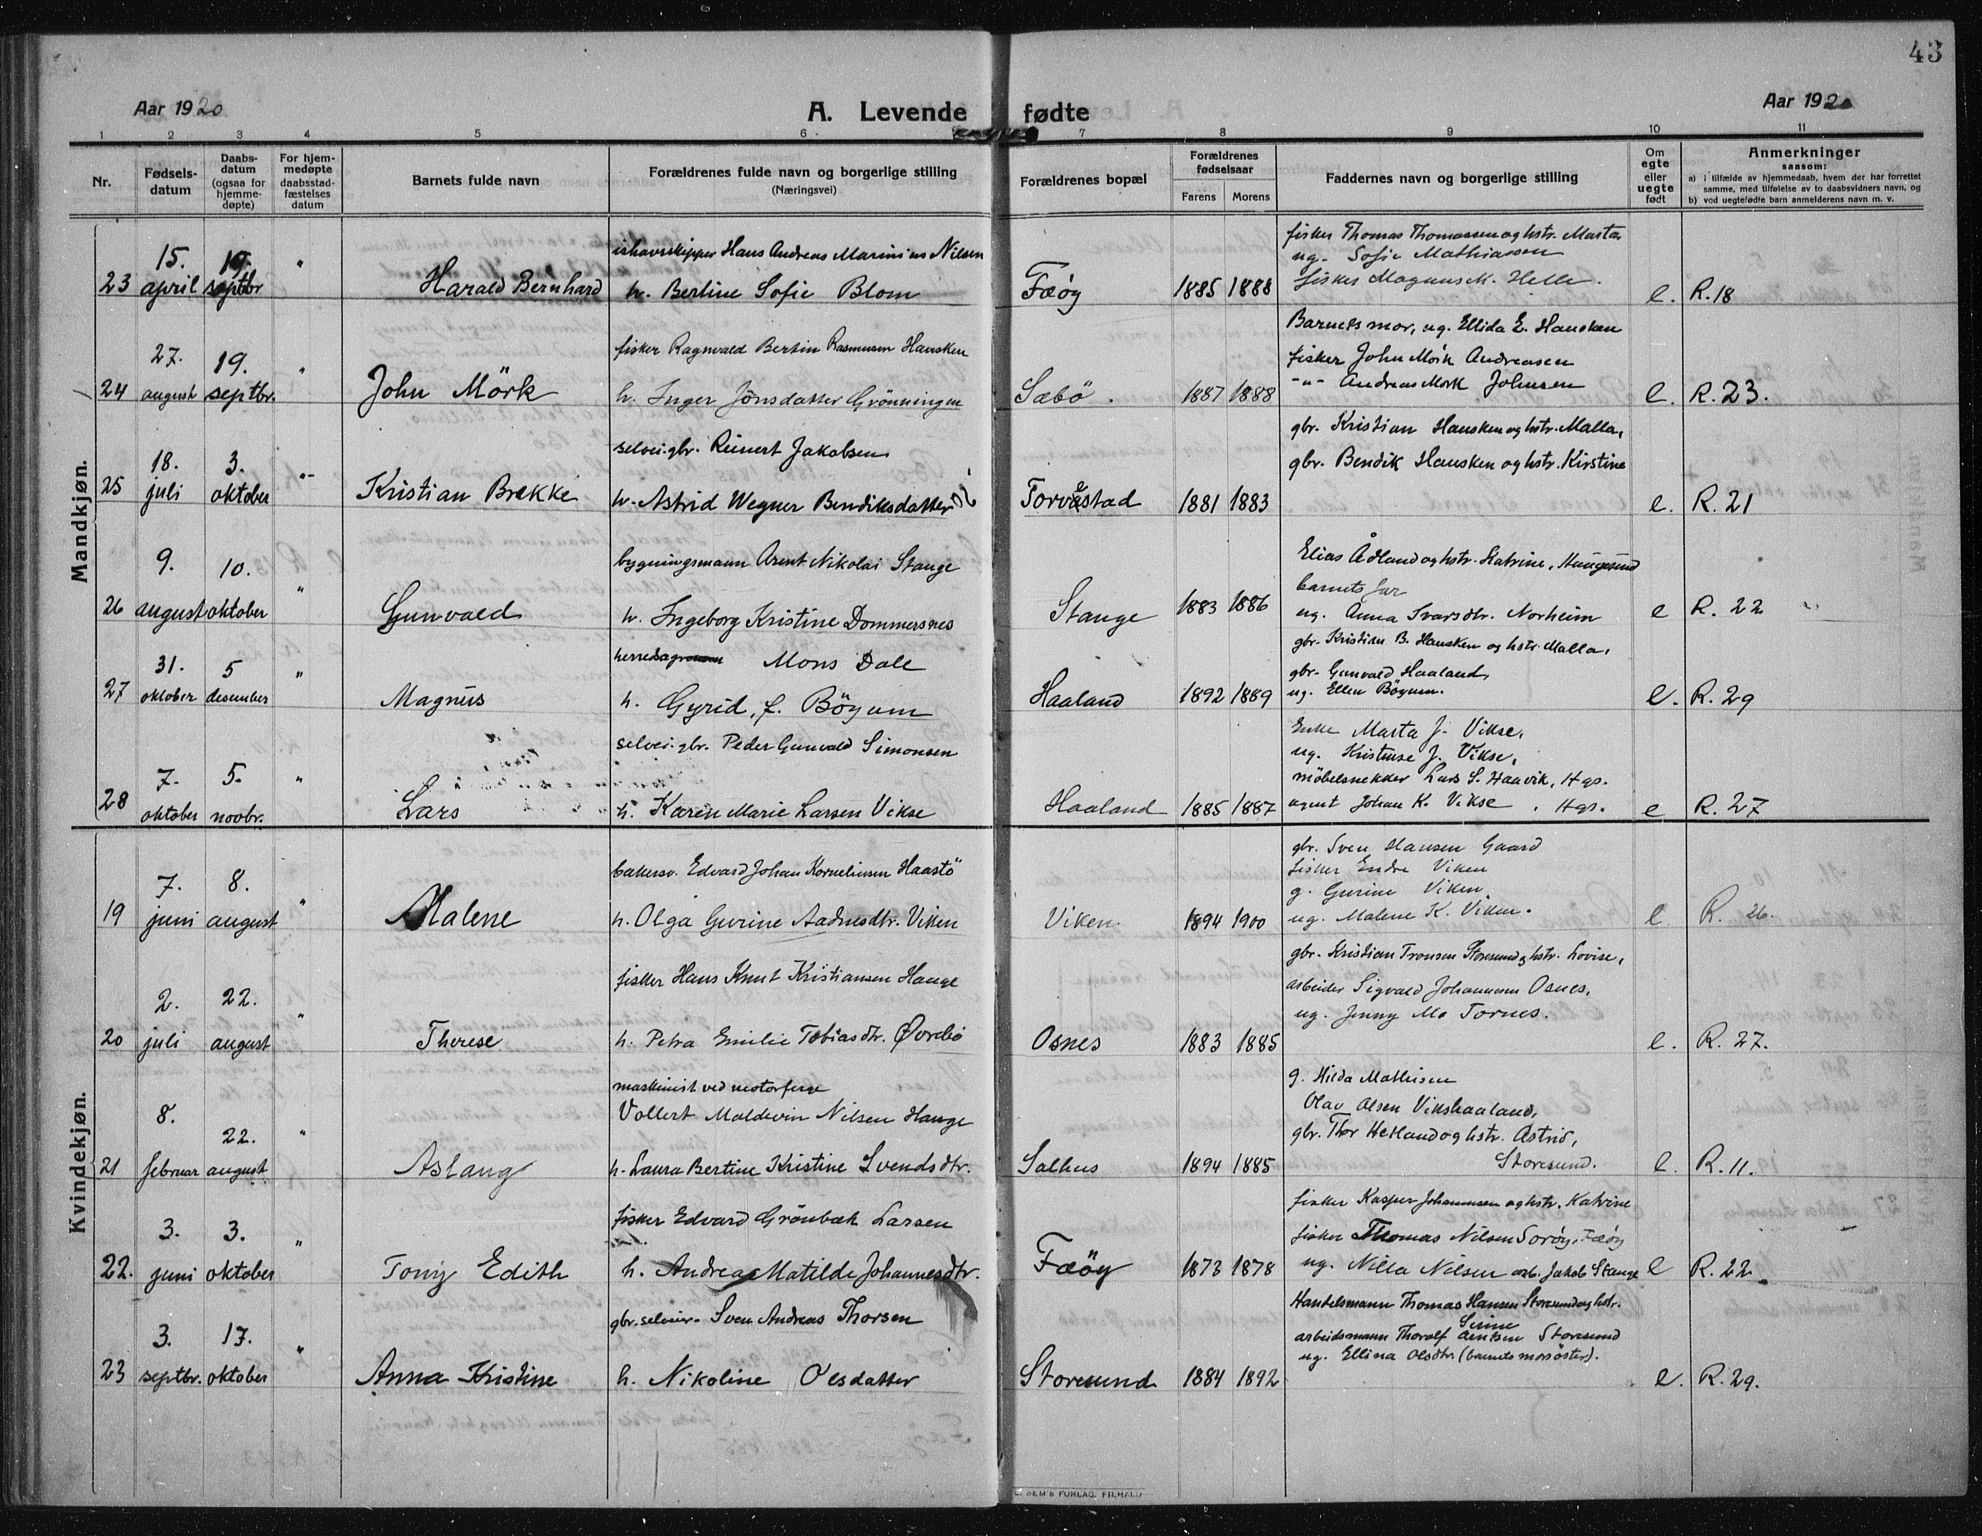 43
Aar 1920
A. Levende fødte
Aar 192
1 2 3 4 5 6 7 8 9 10 11
Nr.
Fødsels-
datum
Daabs-
datum
(ogsaa for
hjemme-
døpte)
For hjem-
medøpte
daabsstad-
fæstelses
datum
Barnets fulde navn
Forældrenes fulde navn og borgerlige stilling
(Næringsvei)
Forældrenes bopæl
Forældrenes
fødselsaar
Farens Morens
Faddernes navn og borgerlige stilling
Om
egte
eller
uegte
født
Anmerkninger
saasom:
a) i tilfælde av hjemmedaab, hvem der har forrettet
samme, med tilføielse av to daabsvidners navn, og
b) ved uegtefødte barn anmelderens navn m. v.
Mandkjøn.
23 15. april 19. septbr " Harald Bernhard
ishavsskipper Hans Andreas Marinius Nilsen
h. Bertine Sofie Blom
Fæöy 1885 1888
fisker Thomas Thomassen og hstr. Marta
ug. Sofie Mathiassen
fisker Magnus M. Helle.
e. R. 18
24 27. august 19. septbr. " John Mörk
fisker Ragnvald Bertin Rasmussen Hansken
h. Inger Jönsdatter Grönningen
Sæbö. 1887 1888
Barnets mor, ug. Ellida E. Hansken
fisker John Mörk Andreasen
-"- Andreas Mörk Johnsen
e. R. 23.
25 18. juli 3. oktober " Kristian Brekke
selvei.gbr. Reinert Jakobsen
h. Astrid Wegner Bendiksdatter
Torvestad 1881 1883
gbr. Kristian Hansken og hstr. Malla,
gbr. Bendik Hansken og hstr. Kirstine
e. R. 21
26 9. august 10. oktober " Gunvald
bygningsmann Arent Nikolai Stange
h. Ingeborg Kristine Dommersnes
Stange 1883 1886
Elias Ådland og hstr. Katrine, Haugesund
barnets far
ug. Anna Svarsdtr. Norheim
e R. 22
27 31. oktober 5 desember " Magnus
herredsagronom Mons Dale
h. Gyrid, f. Böyum
Haaland 1892 1889
gbr. Kristian B. Hansken og hstr. Malla,
gbr. Gunvald Haaland,
ug. Ellen Böyum.
e. R. 29
28 7. oktober 5. novbr. " Lars
selvei.gbr. Peder Gunvald Simonsen
h. Karen Marie Larsen Vikse
Haaland 1885 1887
Enke Marta J. Vikse,
ug. Kristense J. Vikse,
möbelsnekker Lars S. Haavik, Hgs.
agent Johan K. Vikse, Hgs.
e R. 27
Kvindekjøn.
19 7. juni 8. august " Malene
bakersv. Edvard Johan Korneliussen Haastö
h. Olga Gurine Aadnesdtr. Viken
Viken. 1894 1900
gbr. Sven Hansen Gaard
fisker Endre Viken
g. Gurine Viken
ug. Malene K. Viken.
e. R. 26.
20 2. juli 22. august " Therese
fisker Hans Knut Kristiansen Hauge
h. Petra Emilie Tobiasdtr. Øvrebö
Osnes 1883 1885
gbr. Kristian Tronsen Storesund og hstr. Lovise,
arbeider Sigvald Johannesen Osnes,
ug. Jenny Mo Tornes.
e. R. 27.
21 8. februar 22. august " Aslaug
maskinist ved motorferge
Vollert Maldevin Nilsen Hauge
h. Laura Bertine Kristine Svendsdtr.
Salhus 1894 1885
g. Hilda Mathisen
Olav Olsen Vikshaaland,
gbr. Thor Hetland og hstr. Astrid,
Storesund.
e. R. 11.
22. 3. juni 3. oktober " Tony Edith
fisker Edvard Grönbæk Larsen
h. Andrea Matilde Johannesdtr.
Fæöy 1873 1878
fisker Kasper Johannesen og hstr. Katrine
fisker Thomas Nilsen Soröy, Fæöy
ug. Nilla Nilsen arb. Jakob Stange
e R. 22.
23 3. septbr. 17. oktober " Anna Kristine
gbr. selveier Sven Andreas Thorsen
h. Nikoline Olsdatter
Storesund 1884 1892
Handelsmann Thomas Hansen Storesund og hstr.
Serine
arbeidsmann Thoralf Arntsen Storesund
ug. Ellina Olsdtr. (barnets morsöster).
e. R. 29.
SEM'S FORLAG, FR.HALD